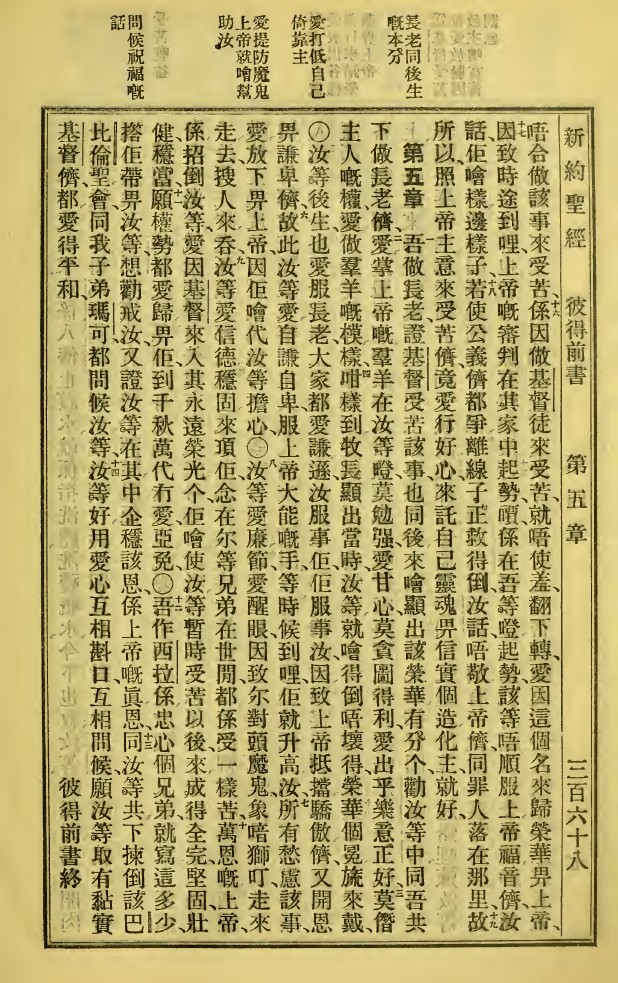 長老同後生
嘅本分
愛打低自己
倚靠主
愛提防魔鬼
上帝就噲幫
助汝
問候祝福嘅
話
新約聖經 彼得前書 第五章 三百六十八
唔合做該事來受苦、十六係因做基督徒來受苦、就唔使羞、翻下轉、愛因這個名來歸榮華畀上帝、
十七因致時途到哩、上帝嘅審判在其家中起勢、嘪係在吾等噔起勢、該等唔順服上帝福音儕、汝
話佢噲樣邊樣子、十八若使公義儕都爭離線子正救得倒、汝話唔敬上帝儕同罪人落在那里、十九故
所以照上帝主意來受苦儕、竟愛行好心來託自己靈魂畀信實個造化主就好、
第五章 一吾做長老、證基督受苦該事、也同後來噲顯出該榮華有分个、勸汝等中同吾共
下做長老儕、二愛掌上帝嘅羣羊在汝等噔、莫勉强、愛甘心、莫貪圖得利、愛出乎樂意正好、三莫僭
主人嘅權、愛做羣羊嘅模樣、四咁樣到牧長顯出當時、汝等就噲得倒唔壞得榮華個冕旒來戴、
〇五汝等後生也愛服長老、大家都愛謙遜、汝服事佢、佢服事汝、因致上帝抵擋驕傲儕、又開恩
畀謙卑儕、六故此汝等愛自謙自卑、服上帝大能嘅手、等時候到哩、佢就升高汝、七所有愁慮該事、
愛放下畀上帝、因佢噲代汝等擔心、〇八汝等愛廉節、愛醒眼、因致尔對頭魔鬼、象喑獅叮走來
走去、搜人來吞汝、九汝等愛信德穩固來項佢、念在尔等兄弟在世閒都係受一樣苦、十萬恩嘅上帝、
係招倒汝等、愛因基督來入其永遠榮光个、佢噲使汝等暫時受苦以後、來成得全完堅固、壯
健穩當、十一願權勢都愛歸畀佢、到千秋萬代冇愛亞兔、〇十二吾作西拉係忠心個兄弟、就寫這多少、
撘佢帶畀汝等、想勸戒汝、又證汝等在其中企穩該恩、係上帝嘅眞恩、十三同汝等共下揀倒該巴
比倫聖會、同我子弟瑪可、都問候汝等、十四汝等好用愛心互相斟口、互相問候、願汝等取有黏實
基督儕、都愛得平和、 彼得前書終